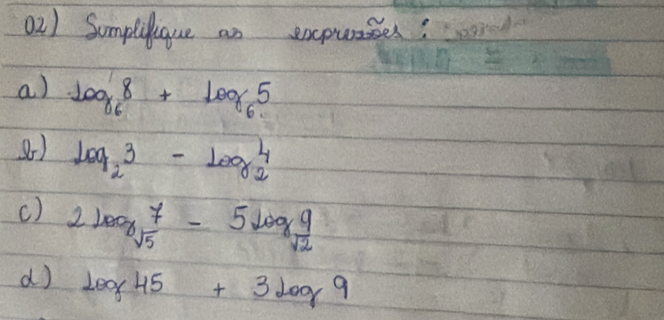 02) Simplifique as expressões:
a) log₆8 + log₆5
b) log₂3 - log₂4
c) 2log_√5 7 - 5log_√2 9
d) log 45 + 3log 9